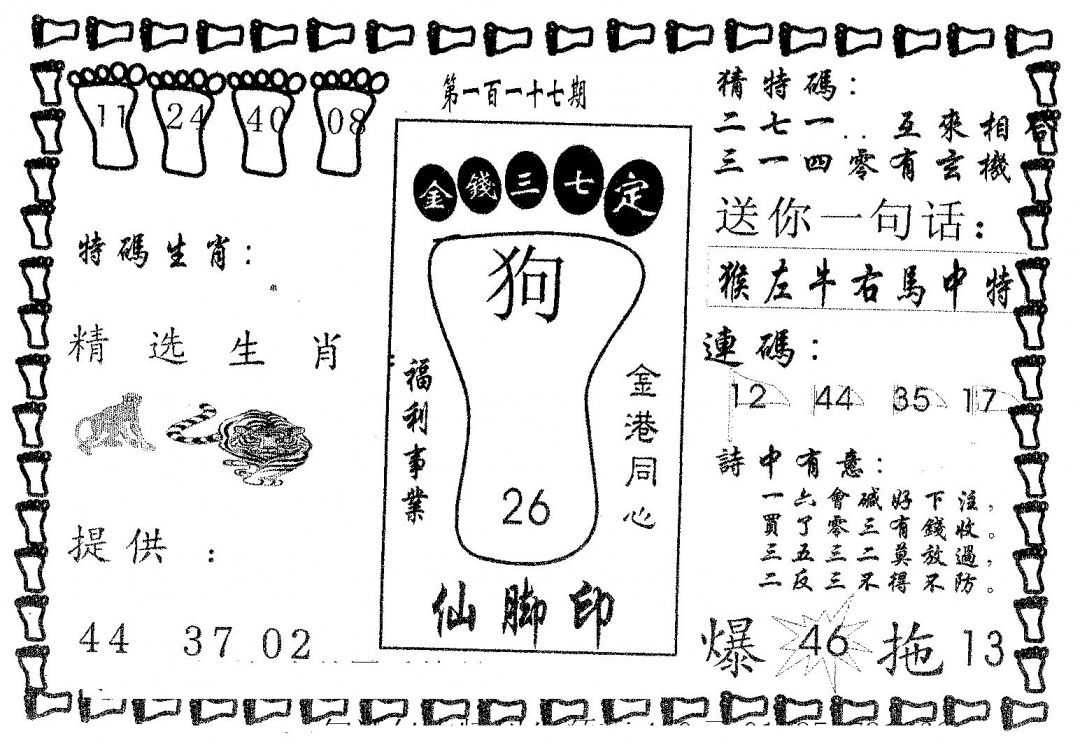 11 24 40 08
第一百一十七期
特碼生肖：
精选生肖：
提供：
44 37 02
金錢三七定
狗
26
福利事業
金港同心
仙脚印
猜特碼：
二七一..互來相合
三一四零有玄機
送你一句话：
猴左牛右馬中特
連碼：
12 44 35 17
詩中有意：
一六會碱好下注，
買了零三有錢收。
三五三二莫放過，
二反三不得不防。
爆 46 拖 13